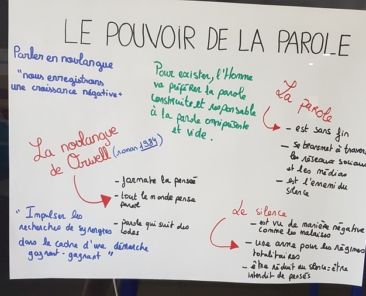 LE POUVOIR DE LA PAROLE
Parler en novlangue
"nous enregistrons
une croissance négative"
Pour exister, l'Homme
va préférer la parole
construite et responsable
à la parole omnipotente
et vide.
La parole
- est sans fin
- se transmet à travers
les réseaux sociaux
et les médias
- est l'ennemi du
silence
La novlangue
de Orwell (roman 1984)
- formate la pensée
- tout le monde pense
pareil
- parole qui suit des
codes
"Impulser les
recherches de synergies
dans le cadre d'une démarche
gagnant-gagnant"
Le silence
- est vu de manière négative
comme les malaises
- une arme pour les régimes
totalitaires
- être réduit au silence = être
interdit de pensées